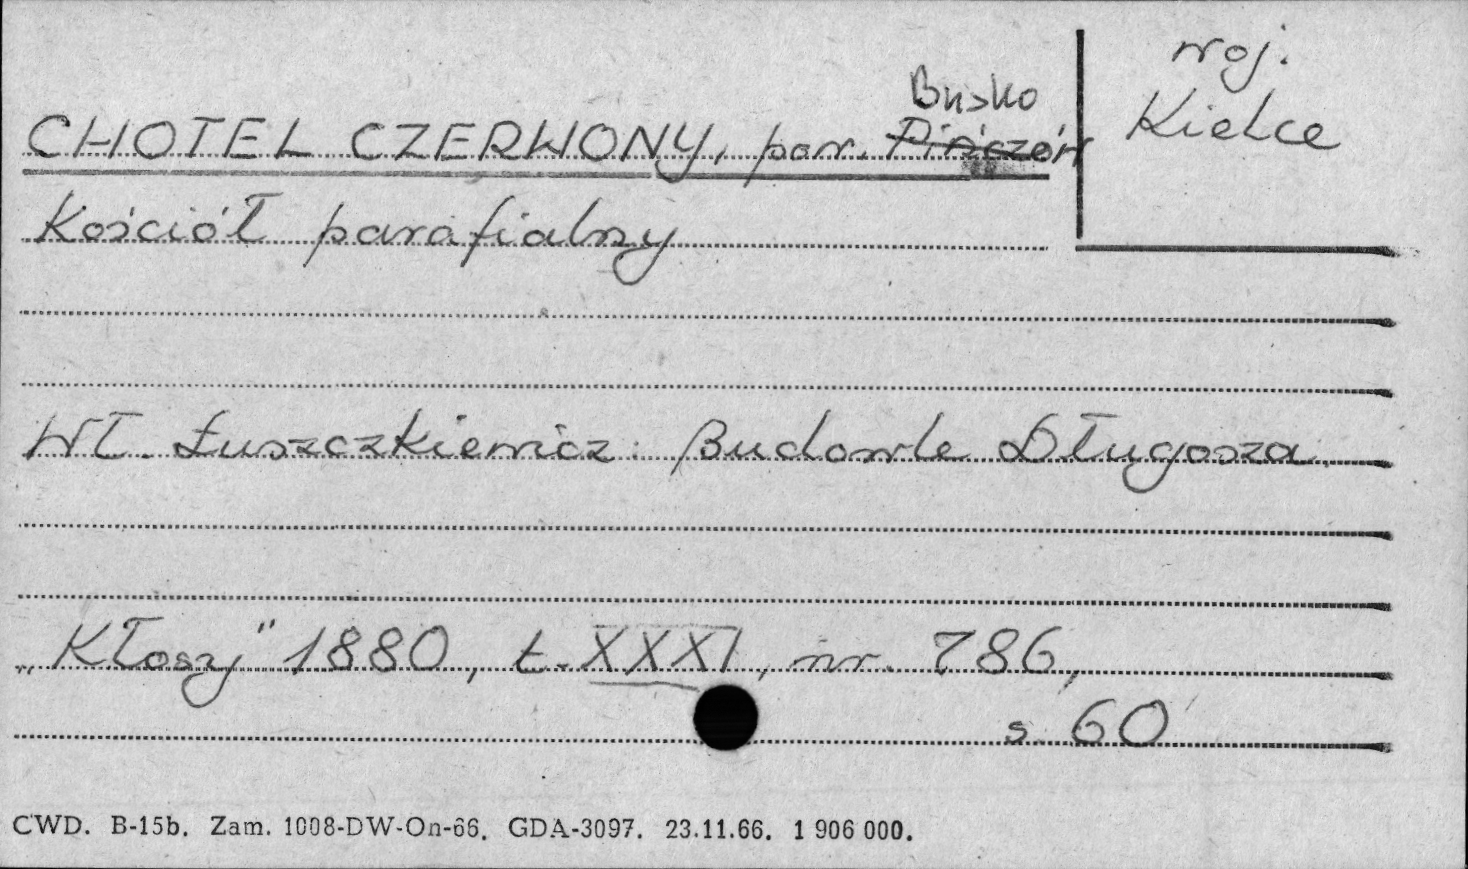 woj.
Kielce
Busko
CHOTEL CZERWONY, pow. Pińczów
Kościół parafialny
Wł. Łuszczkiewicz: Budowle Długosza.
„Kłosy" 1880, t. XXXI, nr. 786,
s. 60
CWD. B-15b. Zam. 1008-DW-On-66. GDA-3097. 23.11.66. 1 906 000.